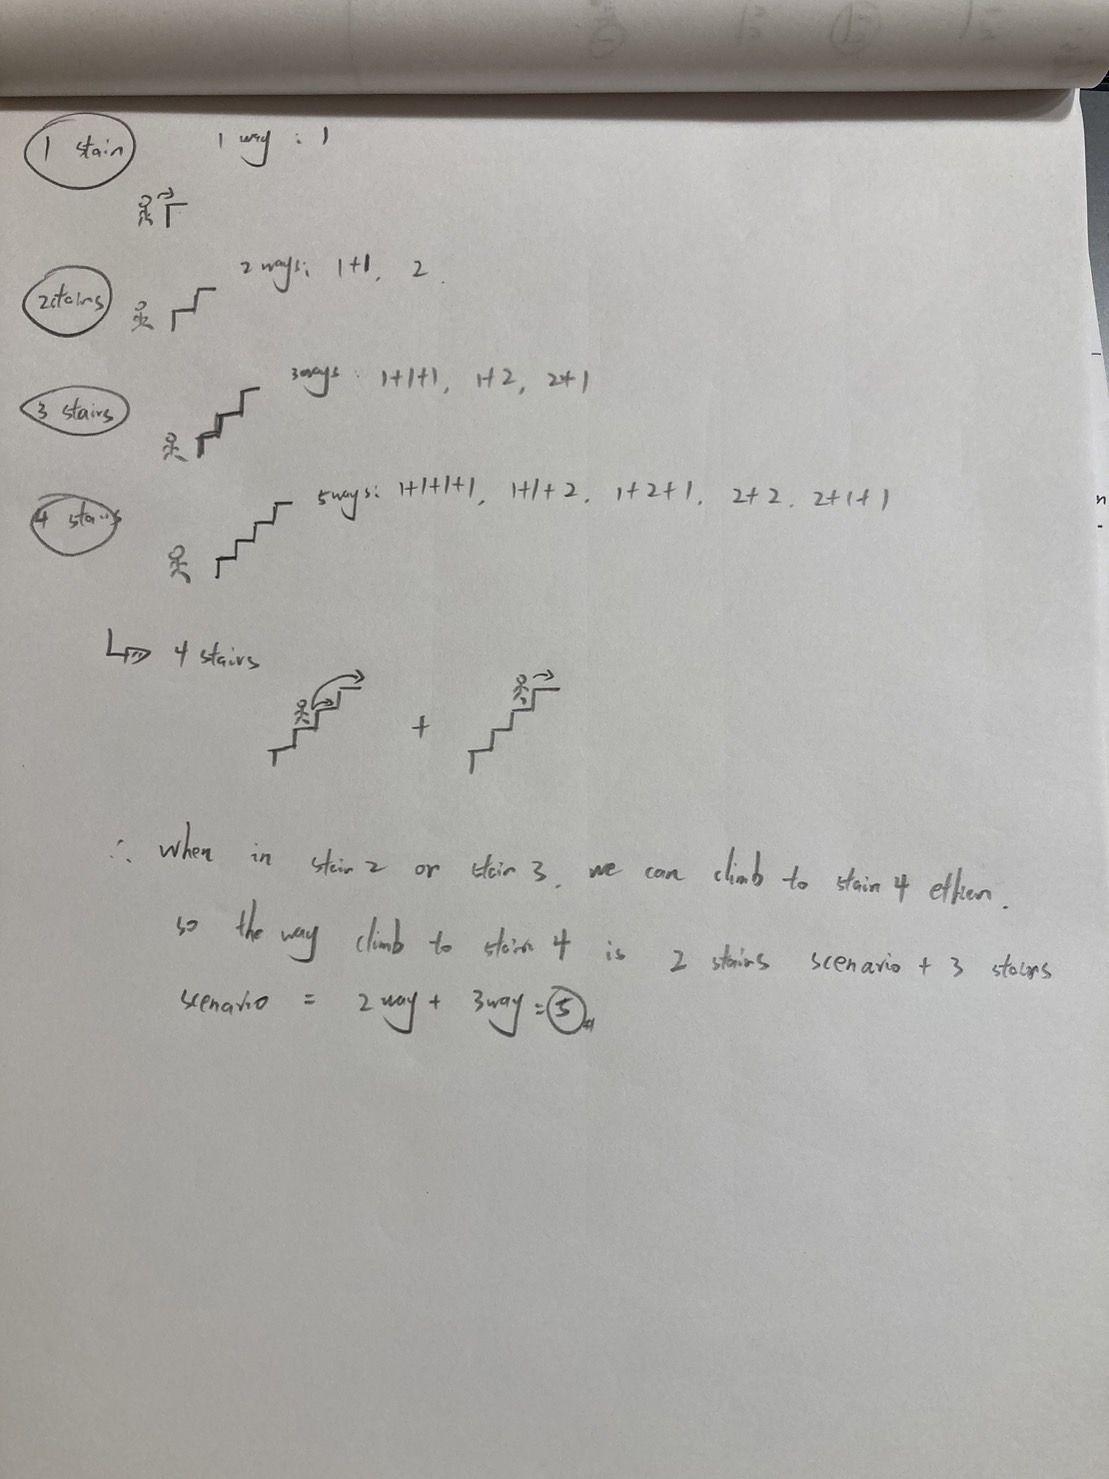 1 stair
1 way : 1
2 stairs
2 ways: 1+1, 2.
3 stairs
3 ways: 1+1+1, 1+2, 2+1
4 stairs
5 ways: 1+1+1+1, 1+1+2, 1+2+1, 2+2, 2+1+1
4 stairs
+
∴ When in stair 2 or stair 3, we can climb to stair 4 .
so the way climb to stair 4 is 2 stairs scenario + 3 stairs
scenario = 2 way + 3 way = 5